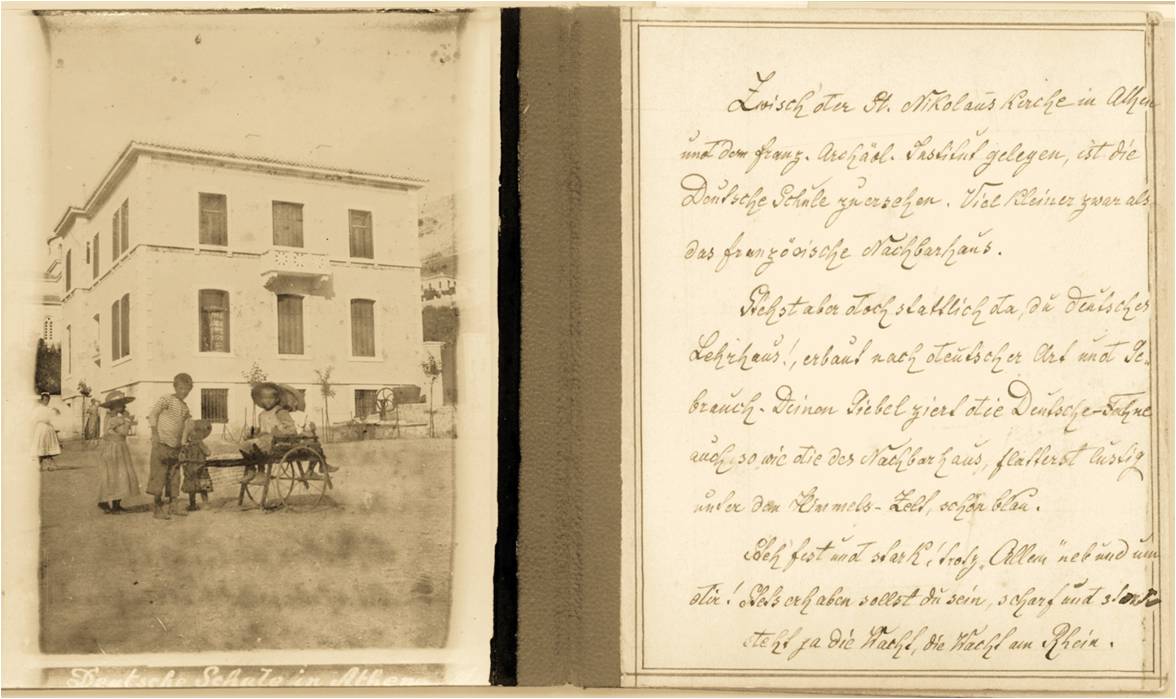 Deutsche Schule in Athen
Zwisch' der St. Nikolaus Kirche in Athen
und dem franz. Archäol. Institut gelegen, ist die
Deutsche Schule zu ersehen. Viel kleiner zwar als
das französische Nachbarhaus.
Stehst aber doch stattlich da, du deutsches
Lehrhaus!, erbaut nach deutscher Art und Ge-
brauch. Deinen Giebel ziert die Deutsche-Fahne
auch, so wie die des Nachbarhaus, flatterst lustig
unter dem Himmels-Zelt, schön blau.
Steh' fest und stark! trotz Allem neb und um
dir! Stets erhaben sollst du sein, scharf und
steht ja die Wacht, die Wacht am Rhein.